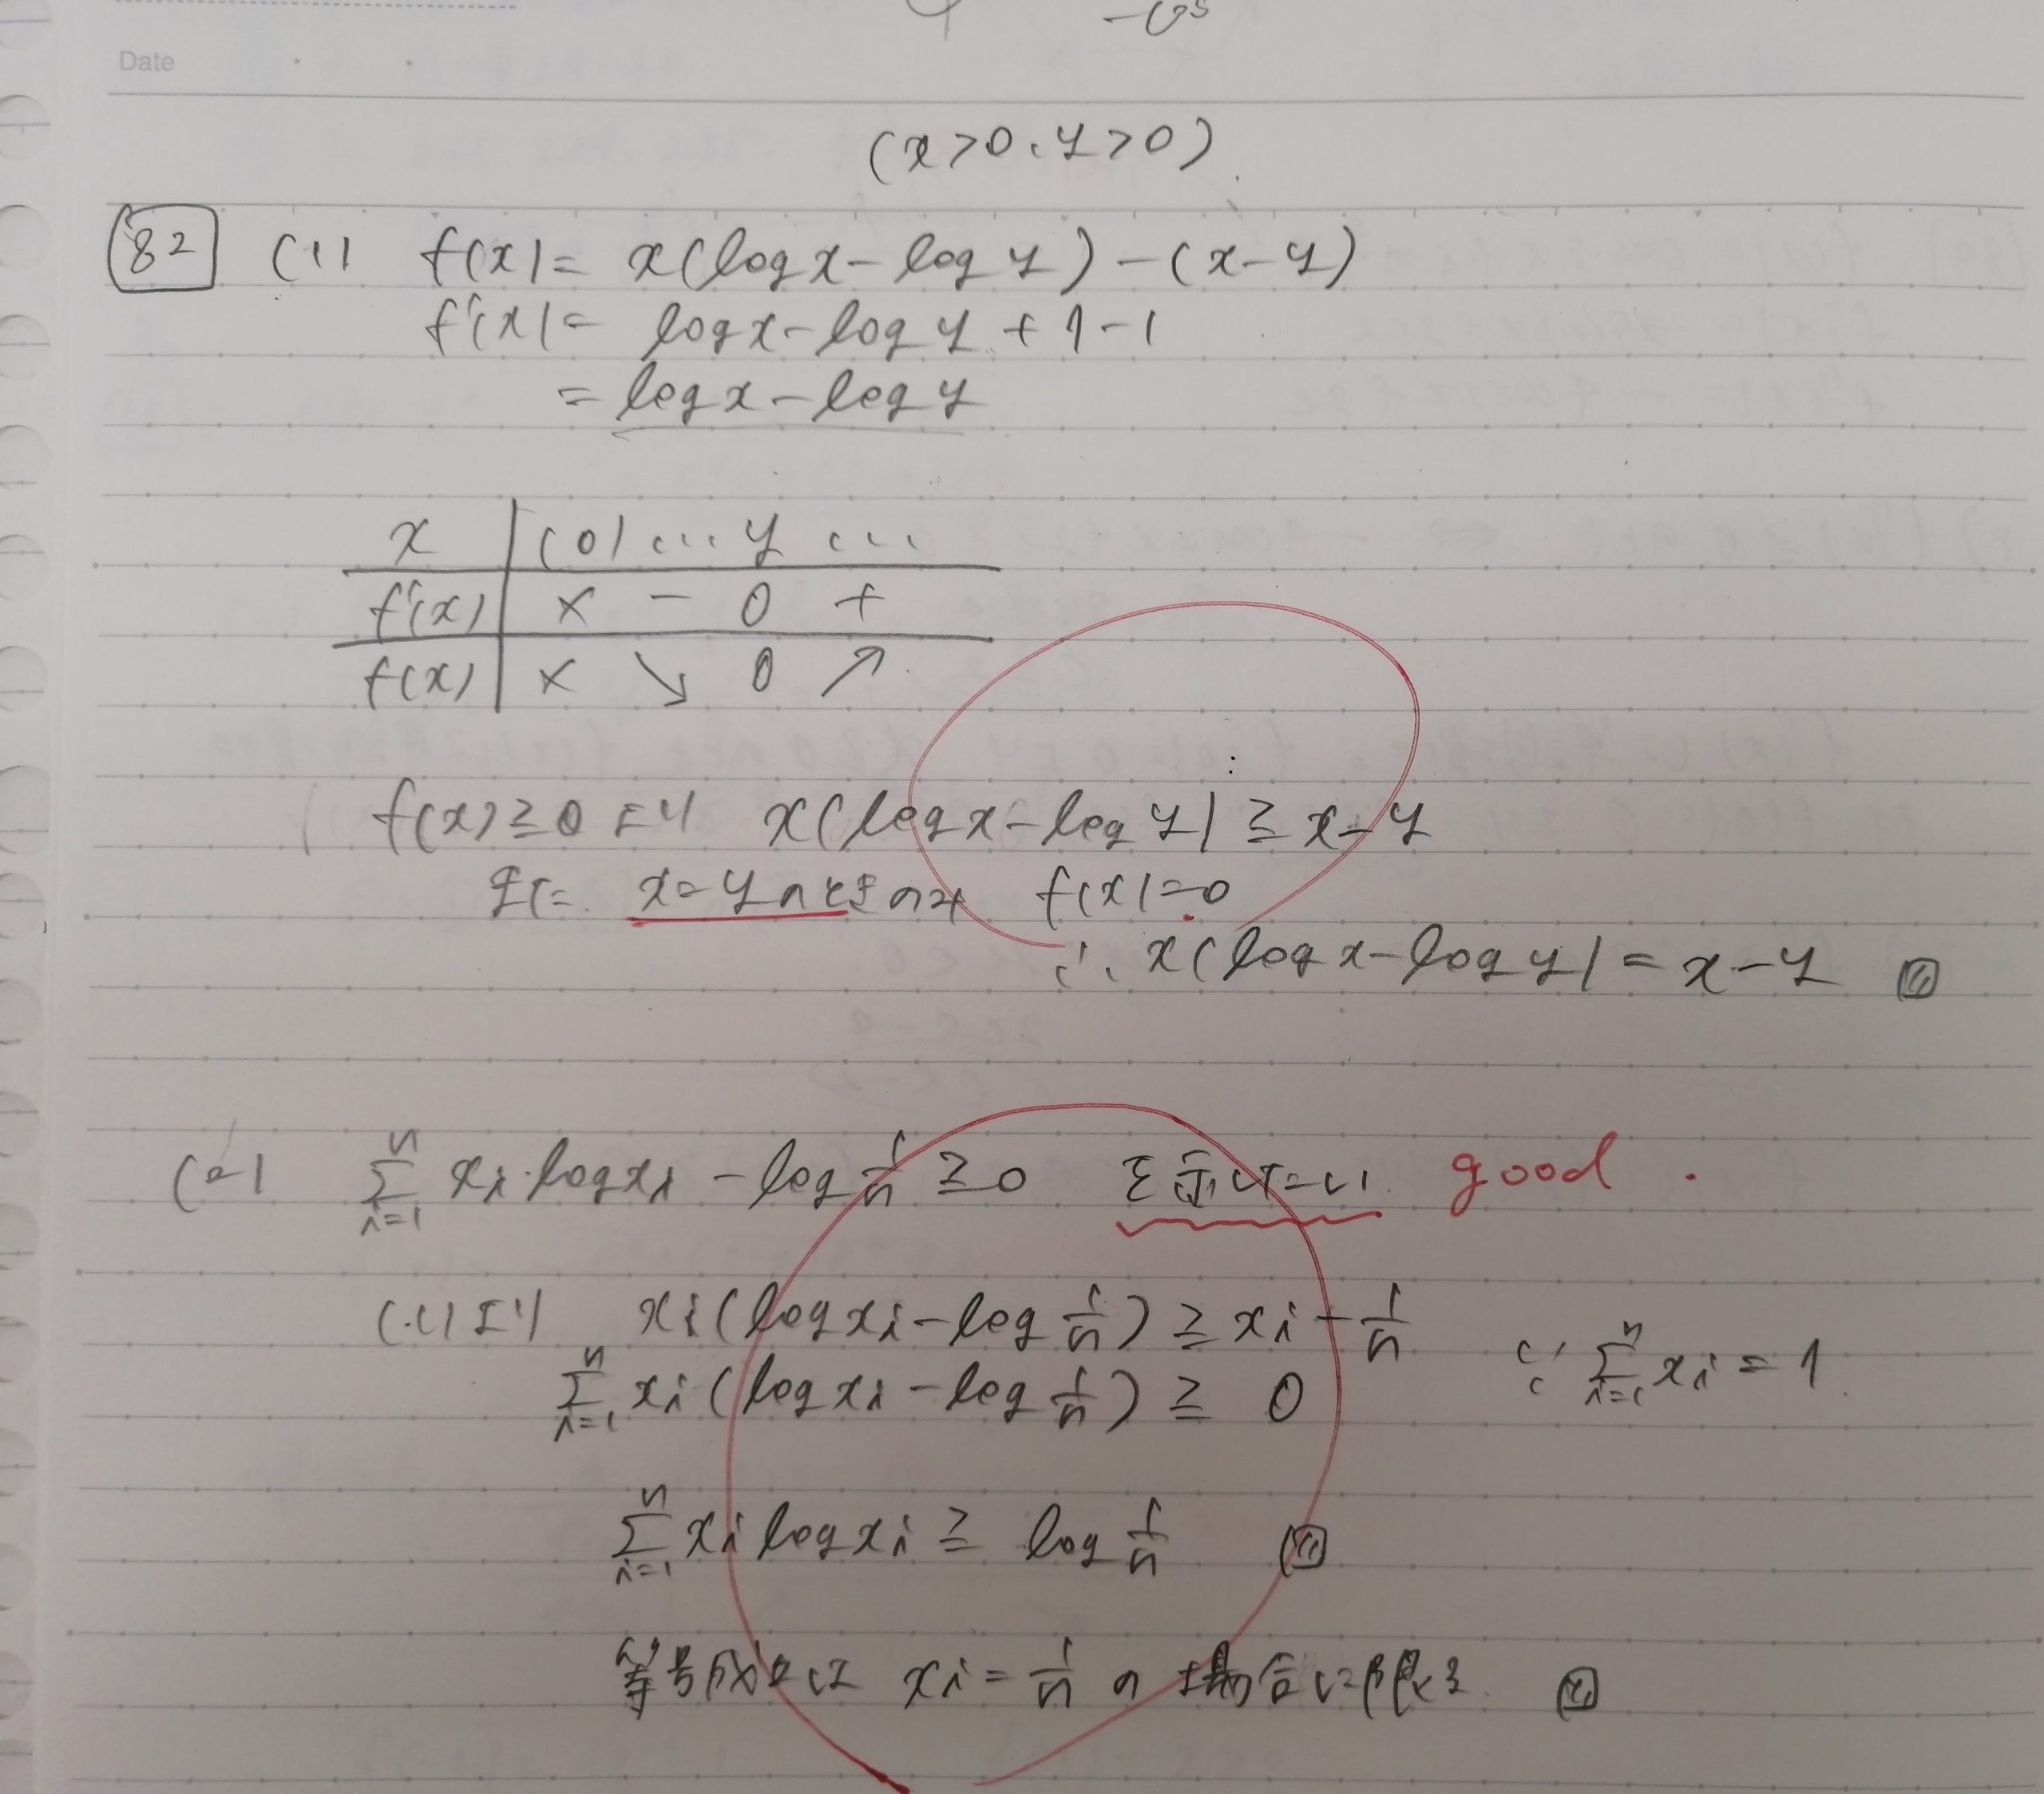 Date
(x>0, y>0)
82 (1) f(x)= x(log x - log y) - (x-y)
f'(x)= log x - log y + 1 - 1
= log x - log y
x | (0) … y …
f'(x) | × - 0 +
f(x) | × ↘ 0 ↗
f(x)≧0 より x(log x - log y) ≧ x-y
また x=yのときのみ f(x)=0
∴ x(log x - log y) = x-y
(2) \sum_{i=1}^{n} xi・log xi - log 1/n ≧0 を示したい good.
(1)より xi(log xi - log 1/n) ≧ xi - 1/n
\sum_{i=1}^{n} xi(log xi - log 1/n) ≧ 0 ∵ \sum_{i=1}^{n} xi = 1
\sum_{i=1}^{n} xi log xi ≧ log 1/n
等号成立は xi = 1/n の場合に限る